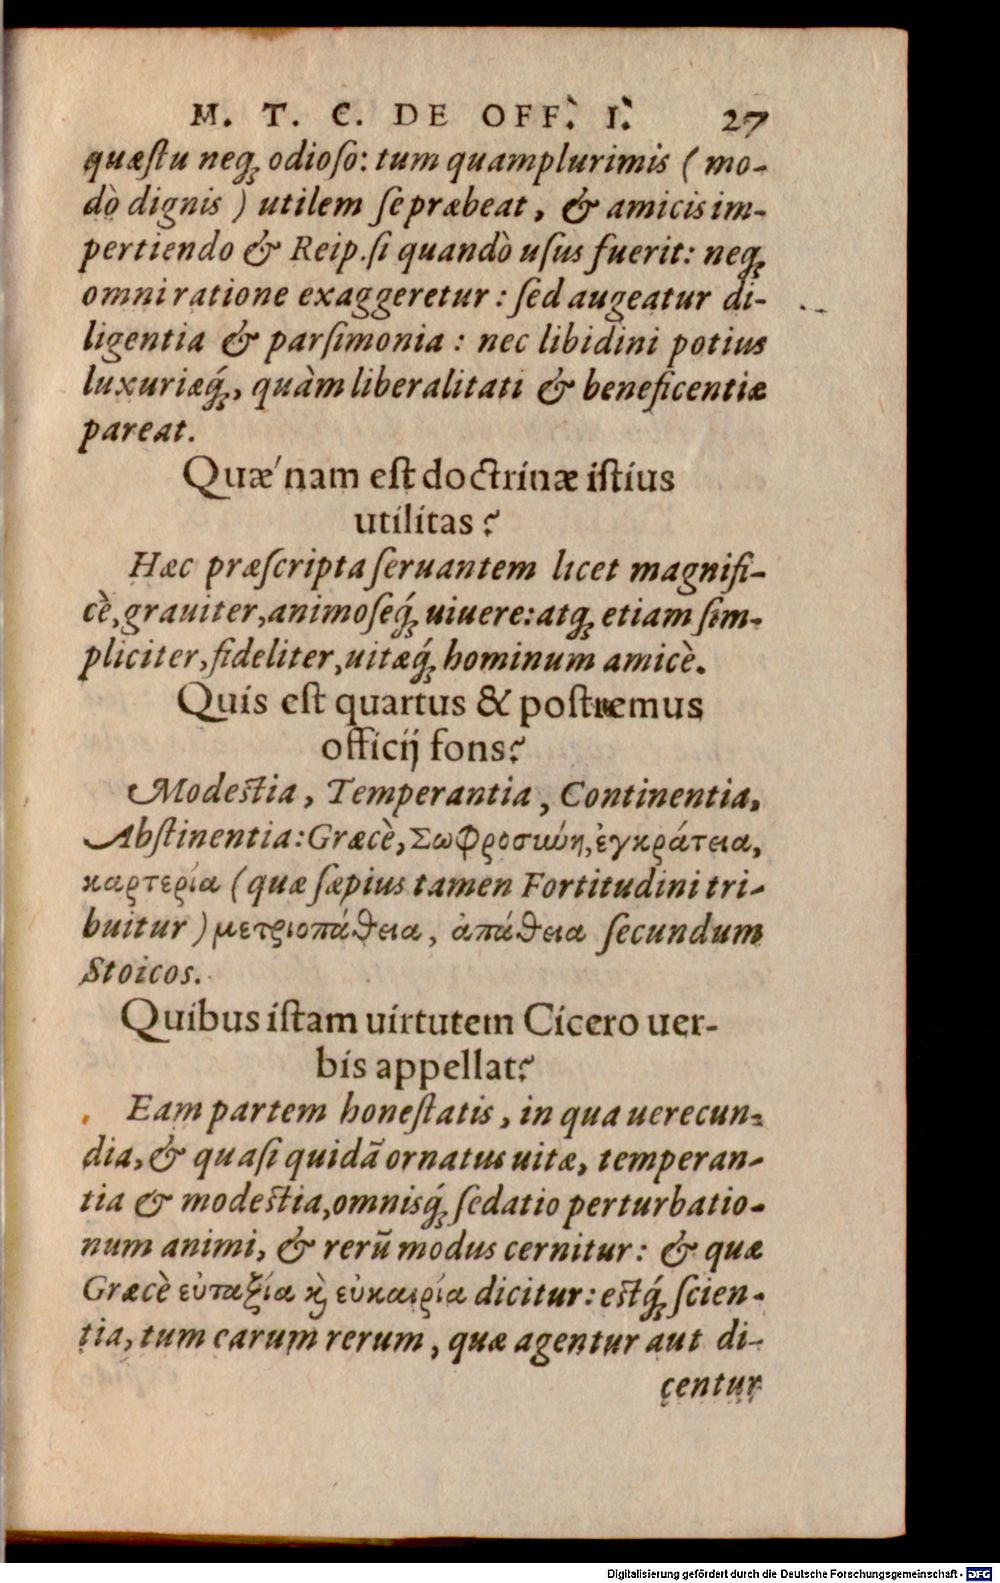 M. T. C. DE OFF. I. 27
quæſtu neqꝫ odioſo: tum quamplurimis ( mo-
dò dignis ) utilem ſe præbeat, & amicis im-
pertiendo & Reip. ſi quandò uſus fuerit: neqꝫ
omni ratione exaggeretur: ſed augeatur di-
ligentia & parſimonia : nec libidini potius
luxuriæq́ꝫ, quàm liberalitati & beneficentiæ
pareat.
Quæ'nam eſt doctrinæ iſtius
utilitas?
Hæc præſcripta ſeruantem licet magnifi-
cè, grauiter, animoſeq́ꝫ uiuere: atqꝫ etiam ſim-
pliciter, fideliter, uitæq́ꝫ hominum amicè.
Quis eſt quartus & poſtremus
officij fons?
Modeſtia, Temperantia, Continentia,
Abſtinentia: Græcè, Σωφροσιώη, ἐγκράτεια,
καρτερία (quæ ſæpius tamen Fortitudini tri-
buitur) μετριοπάθεια, ἀπάθεια ſecundum
Stoicos.
Quibus iſtam uirtutem Cicero uer-
bis appellat?
Eam partem honeſtatis, in qua uerecun-
dia, & quaſi quidã ornatus uitæ, temperan-
tia & modeſtia, omnisq́ꝫ ſedatio perturbatio-
num animi, & rerũ modus cernitur: & quæ
Græcè εὐταξία ϗ εὐκαιρία dicitur: eſtq́ꝫ ſcien-
tia, tum earum rerum, quæ agentur aut di-
centur
Digitalisierung gefördert durch die Deutsche Forschungsgemeinschaft - DFG